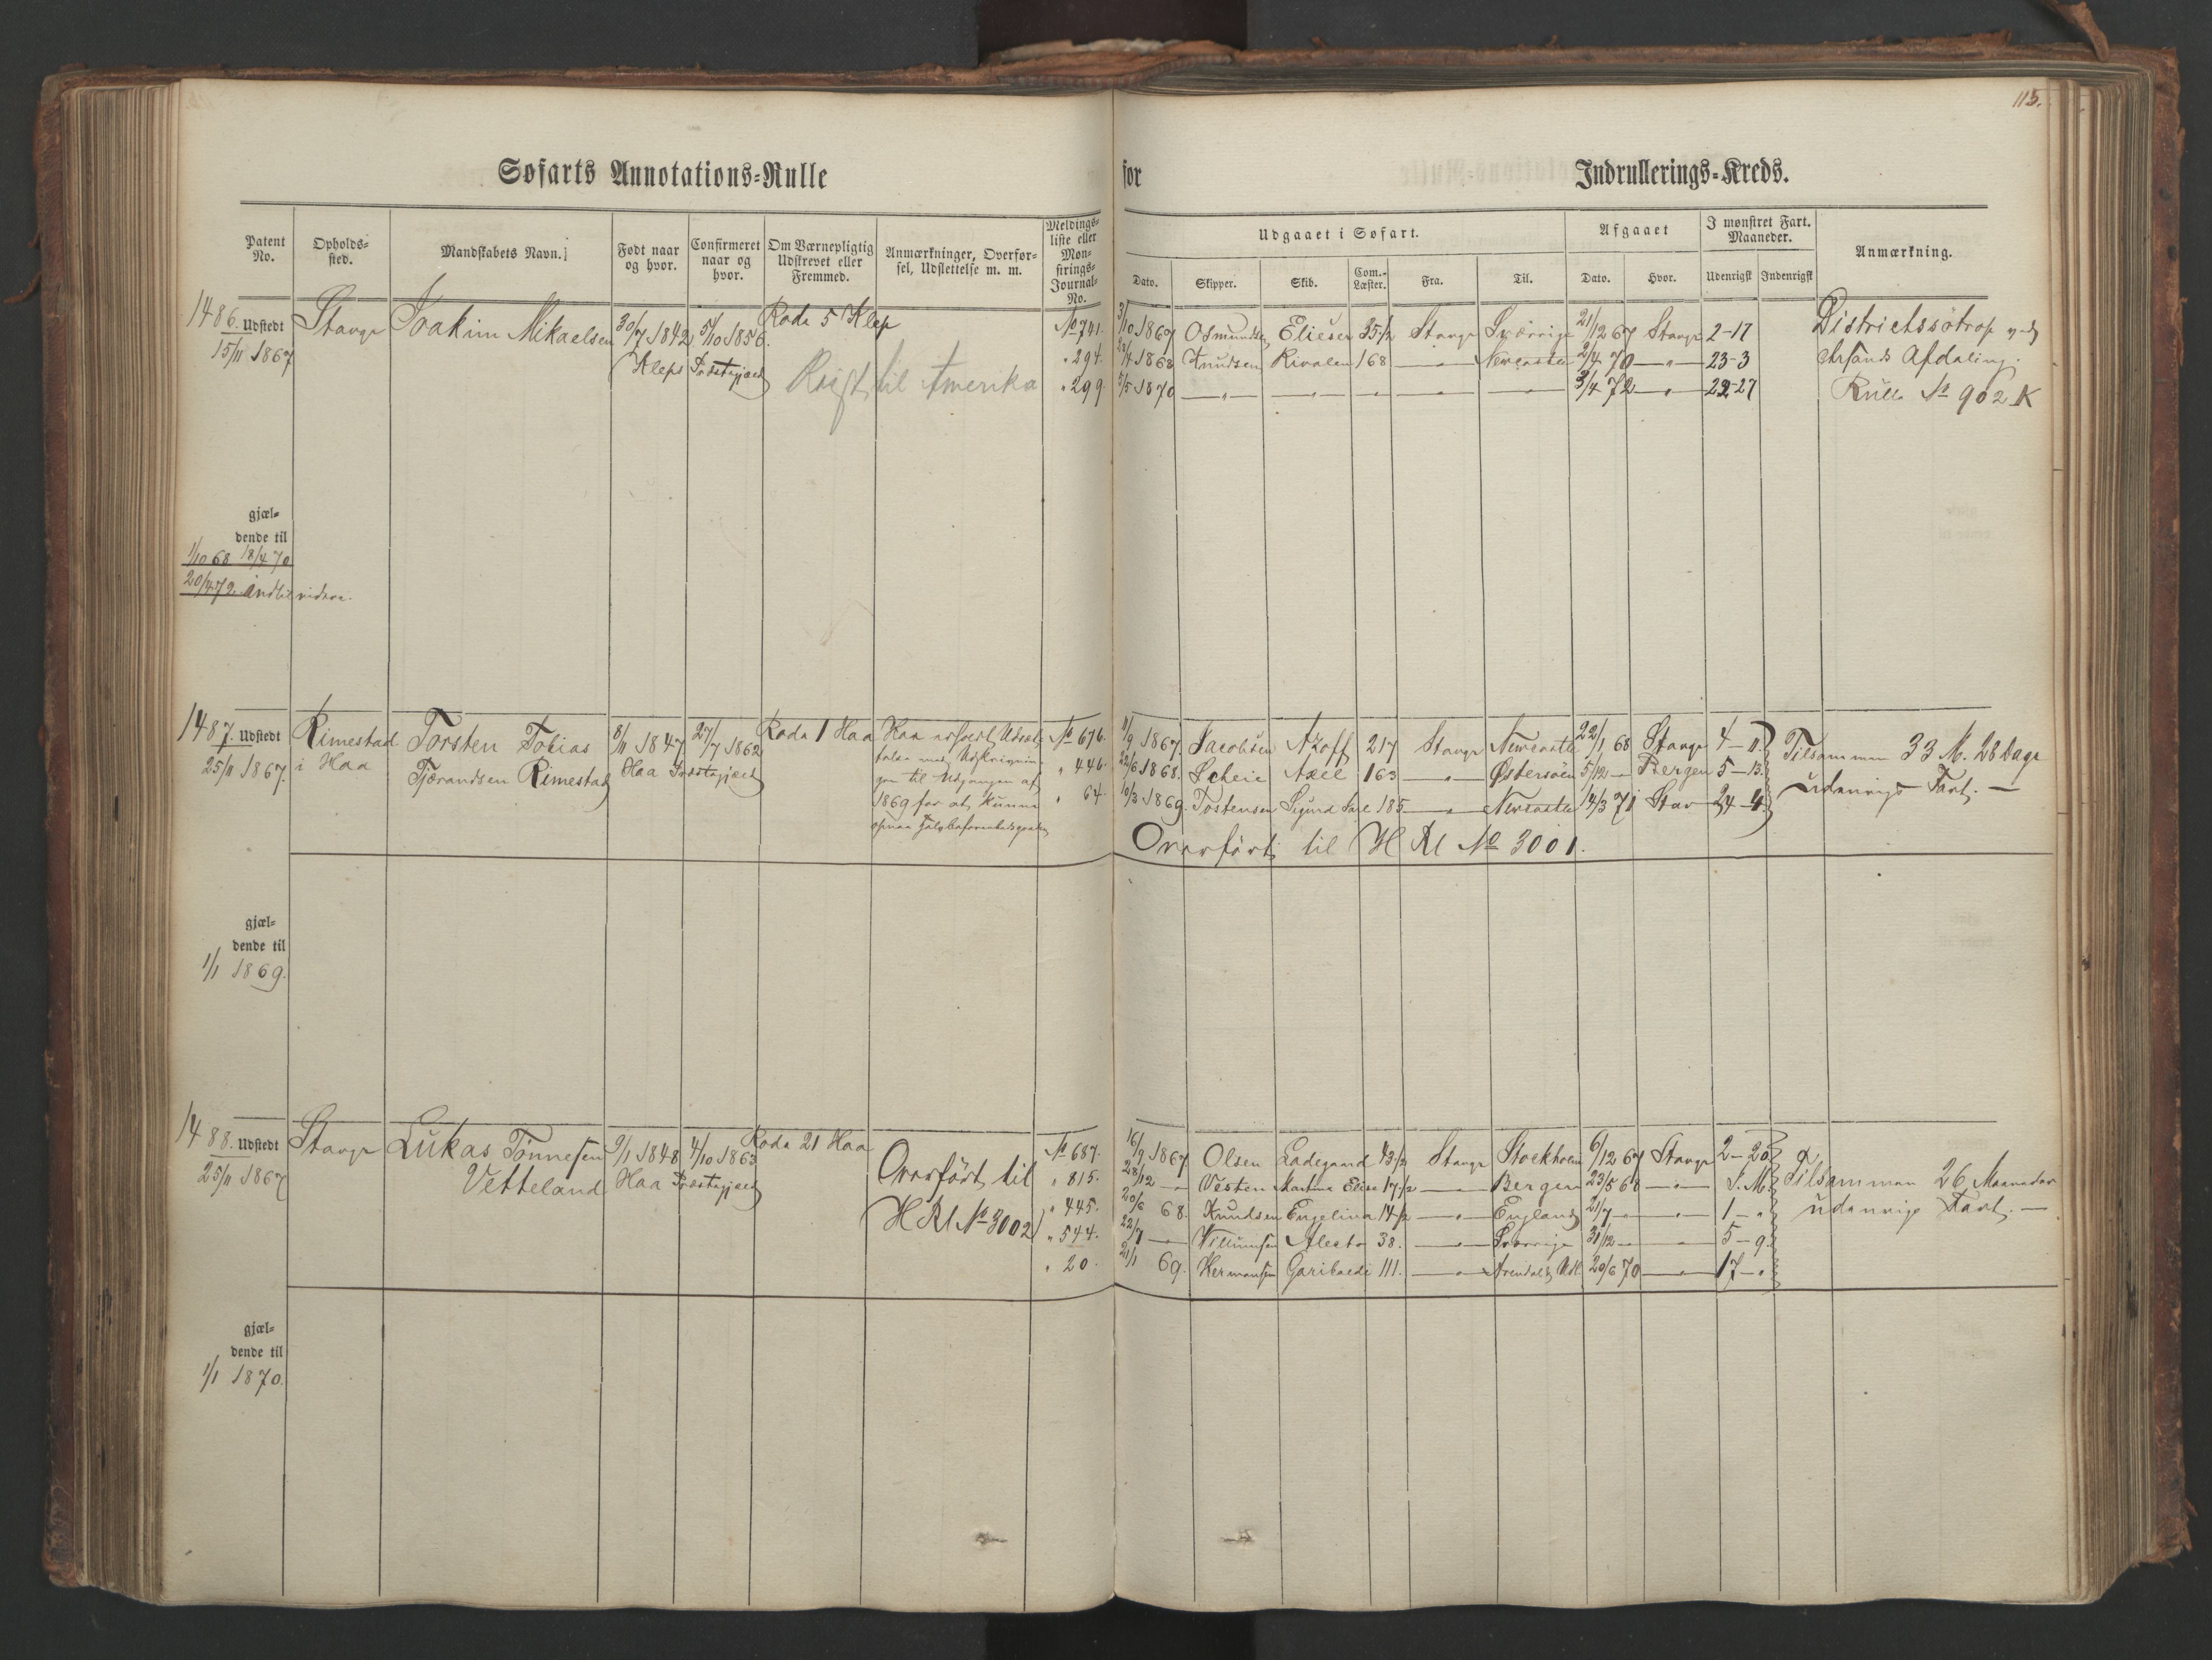 115.
Søfarts Annotations-Rulle for Indrullerings-Kreds.
Patent No. Opholds-sted. Mandskabets Navn. Født naar og hvor. Confirmeret naar og hvor. Om Værnepligtig Udskrevet eller Fremmed. Anmærkninger, Overførsel, Udslettelse m. m. Meldings-liste eller Mønstrings-Journal-No.
Udgaaet i Søfart. Afgaaet I mønstret Fart. Maaneder. Anmærkning.
Dato. Skipper. Skib. Com.-Læster. Fra. Til. Dato. Hvor. Udenrigsk Indenrigsk
1486. Udstedt Stavgr Joakim Mikaelsen 30/7 1842 5/10 1856. Rode 5 Klep No 741. 3/10 1867 Osmundsen Elieser 35 1/2 Stavgr Sverrige 21/12 67 Stavgr 2-17
15/11 1867 Klep Præstegjæld " 294. 23/4 1868 Knudsen Rivalen 168 — " — Newcastle 2/4 70 — " — 23-3
Reist til Amerika " 299 5/5 1870 — " — — " — — " — — " — — " — 3/4 72 — " — 22-27
Districtssøtrop ved
Chrsands Afdeling.
Rulle No 902 K
gjæl-
dende til
1/10 68 18/4 70
20/4 72. indtil videre.
1487. Udstedt Rimestad Torsten Tobias 8/11 1847 27/7 1862 Rode 1 Haa Har erholdt Udsæt- No 676. 11/9 1867. Jacobsen Azoff 217 Stavgr Newcastle 22/1 68 Stavgr 4-11
25/11 1867. i Haa Tjærandsen Rimestad Haa Præstegjæld telse med Udskrivnin- " 446. 22/6 1868. Scheie Axel 163 — " — Østersøen 5/12 — Bergen 5-13.
gen til Udgangen af " 64. 10/3 1869. Tostensen Sigurd Jarl 185 — " — Newcastle 14/3 71 Stav 24-4
1869 for at kunne
Tilsammen 33 M. 28 Dage
udenrigs Fart. —
Overført til H Rl No 3001.
gjæl-
dende til
1/1 1869.
1488. Udstedt Stavgr Lukas Tønnesen 9/1 1848 4/10 1863 Rode 21 Haa No 687. 16/9 1867 Olsen Ladegaard 43 1/2 Stavgr Stockholm 6/12 67 Stavgr 2-20
25/11 1867 Vetteland Haa Præstegjæld Overført til " 815. 28/12 — Vesten Martina Elise 17 1/2 — " — Bergen 23/5 68 — " — I. M.
H Rl No 3002 " 445. 20/6 68. Knudsen Engelina 14 1/2 — " — England 21/7 — — " — 1 — "
" 544. 22/7 — Villumsen Alecto 38. — " — Sverrige 31/12 — — " — 5-9
" 20. 21/1 69. Hermansen Garibaldi 111. — " — Arendal & Udl 20/6 70 — " — 17 — "
Tilsammen 26 Maaneder
udenrigs Fart. —
gjæl-
dende til
1/1 1870.